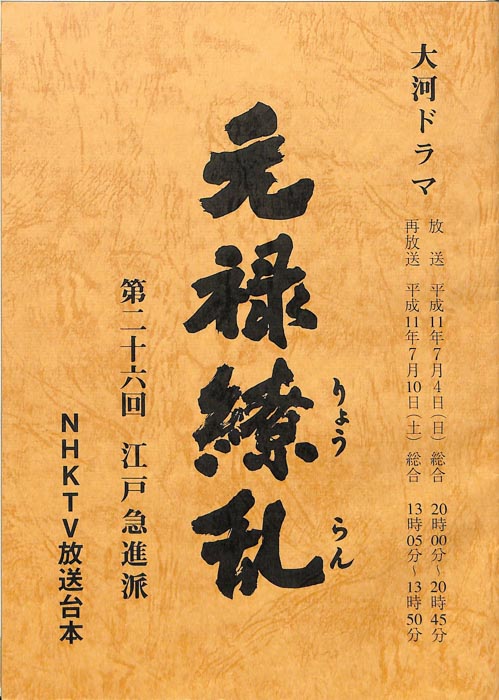 大河ドラマ
放送 平成11年7月4日(日) 総合 20時00分～20時45分
再放送 平成11年7月10日(土) 総合 13時05分～13時50分
元禄繚乱
りょう らん
第二十六回 江戸急進派
NHKTV放送台本